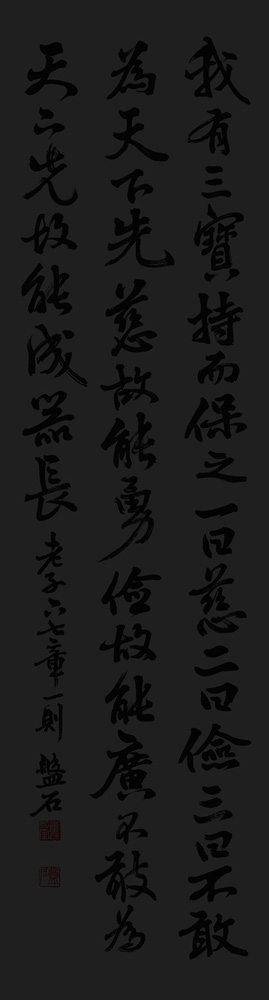 我有三寶持而保之一曰慈二曰儉三曰不敢
為天下先慈故能勇儉故能廣不敢為
天下先故能成器長 老子六七章一則 盤石